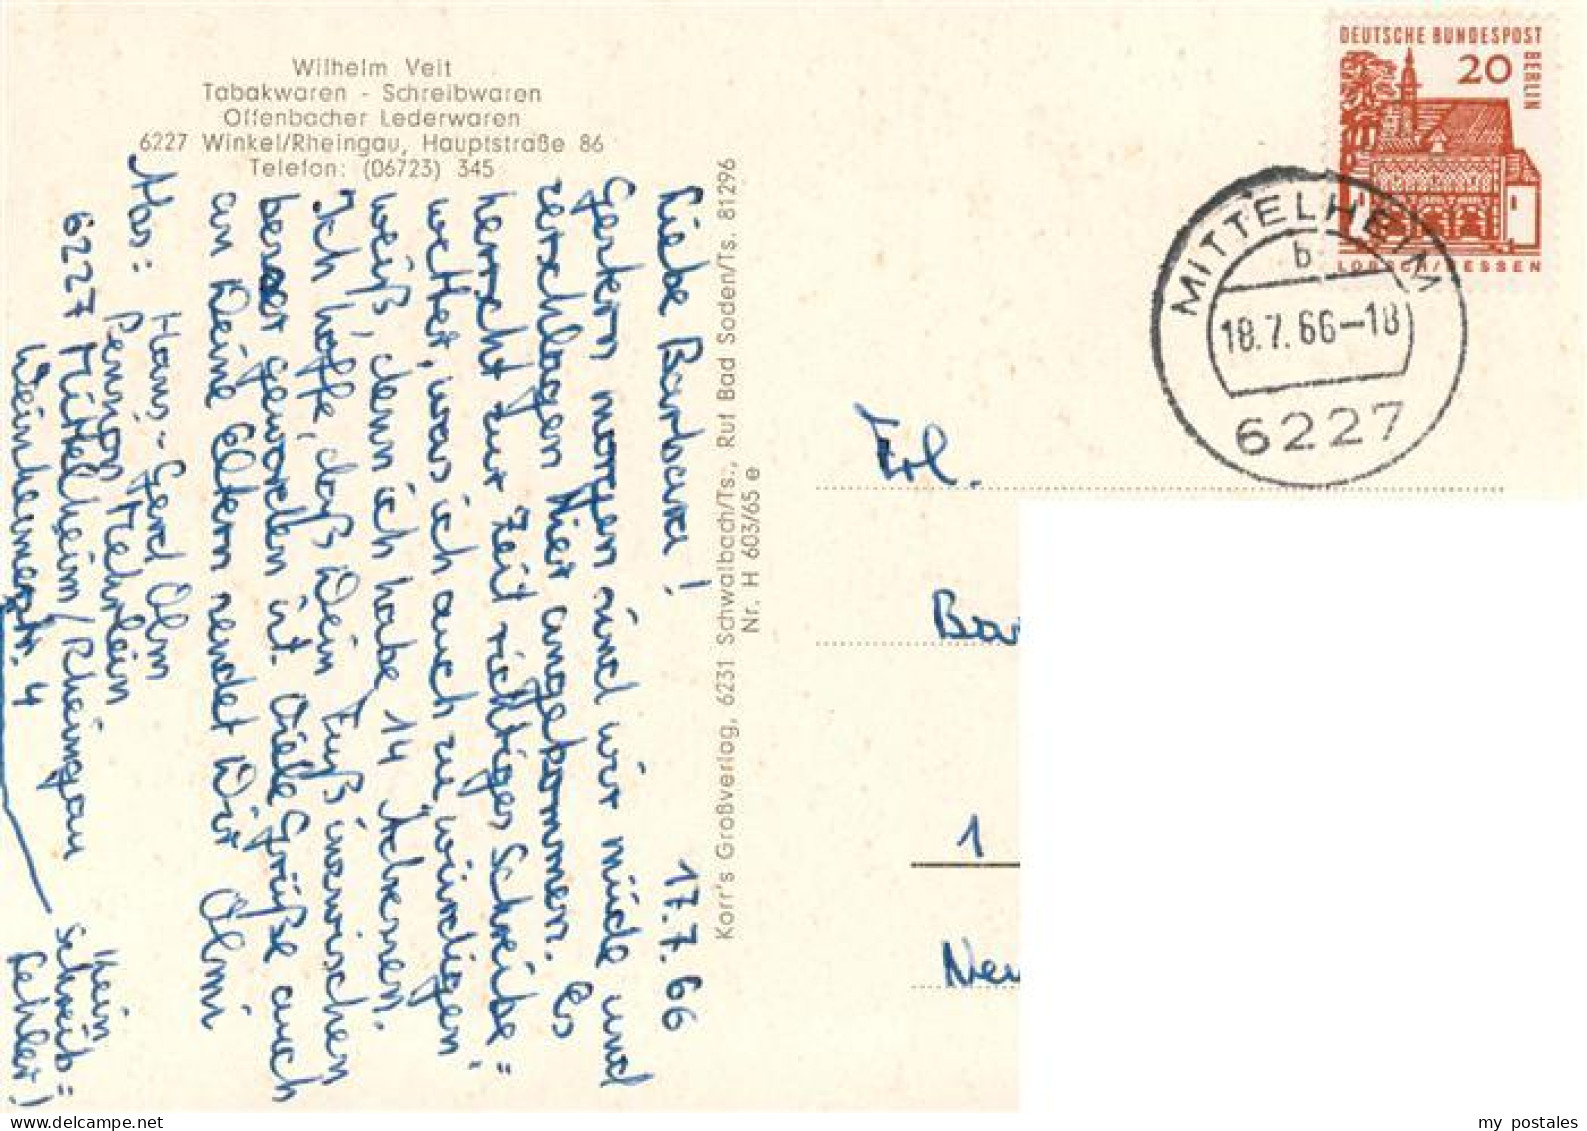 Wilhelm Veit
Tabakwaren - Schreibwaren
Offenbacher Lederwaren
6227 Winkel/Rheingau, Hauptstraße 86
Telefon: (06723) 345
17.7.66
Liebe Barbara!
Gestern morgen sind wir müde und
zerschlagen hier angekommen. Es
herrscht zur Zeit richtiges Schreibe=
wetter, was ich auch zu "würdigen"
weiß, denn ich habe 14 Adressen.
Ich hoffe, daß Dein Fuß inzwischen
besser geworden ist. Viele Grüße auch
an Deine Eltern sendet Dir Olmi
Abs: Hans-Gerd Olm
Pension Mehrlein
6227 Mittelheim/Rheingau
Weinheimerstr. 4
Kein
Schreib=
fehler!
Korr's Großverlag, 6231 Schwalbach/Ts., Ruf Bad Soden/Ts. 81296
Nr. H 603/65 e
DEUTSCHE BUNDESPOST
BERLIN
20
LORSCH/HESSEN
MITTELHEIM
b
18.7.66-18
6227
Frl.
Bar
1
Neu
my postales